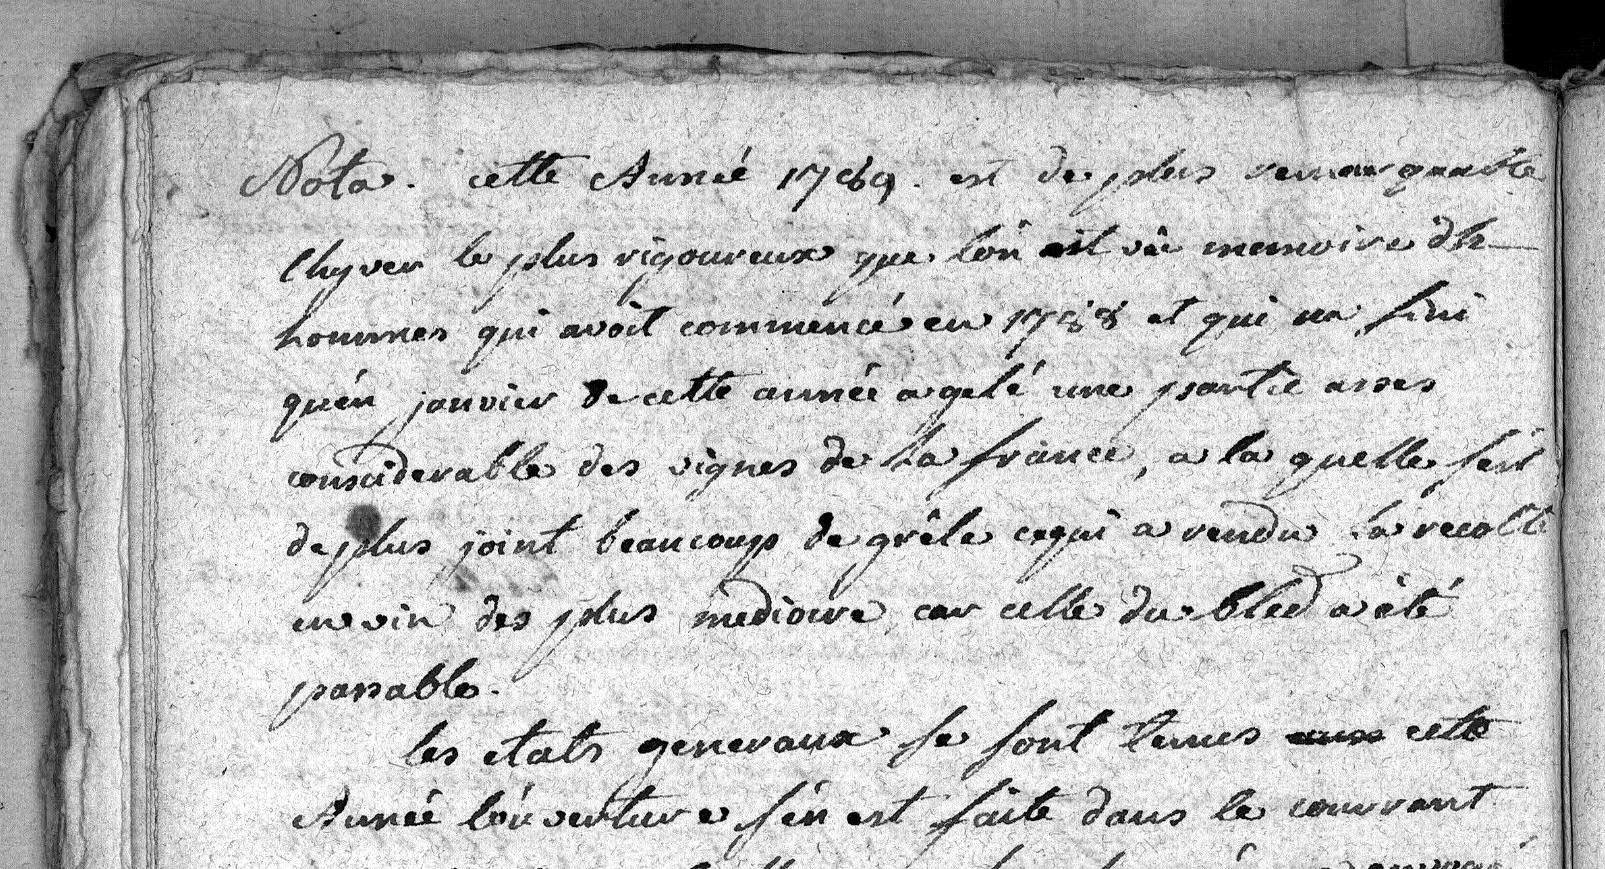 Nota. cette Année 1789. est de plus remarquable
lhyver le plus rigoureux que l'on ait vû memoire dh
hommes qui avoit commencé en 1788 et qui na fini
qu'en janvier de cette année a gelé une partie asses
considerable des vignes de la france, a la quelle sest
de plus joint beaucoup de grêle cequi a rendu la recolte
en vin des plus mediocre car celle du bled a été
passable.
les etats generaux se sont tenus cette
Année l'ouverture s'en est faite dans le courrant